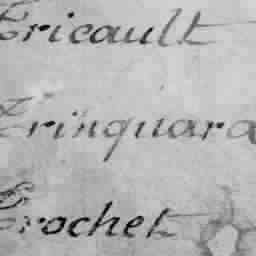 Tricault
Trinquard
Trochet